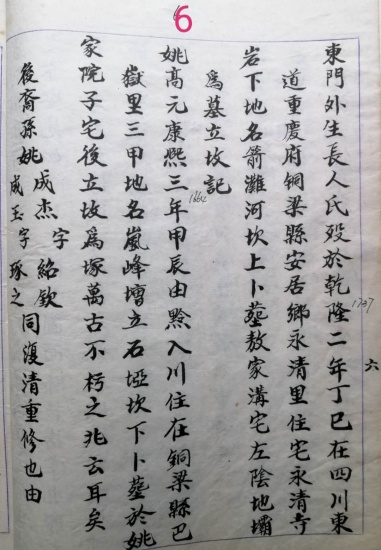 6
東門外生長人氏殁於乾隆二年丁巳在四川東
1737
道重慶府铜梁縣安居鄉永清里住宅永清寺
岩下地名箭灘河坎上卜塟敖家溝宅左陰地壩
為墓立坟記
姚高元康熙三年甲辰由黔入川住在铜梁縣巴
1664
嶽里三甲地名嵐峰壋立石埡坎下卜塟於姚
家院子宅後立坟爲塚萬古不朽之兆云耳矣
後裔孫姚成杰字紹欽
成玉字琢之同復清重修也由
六